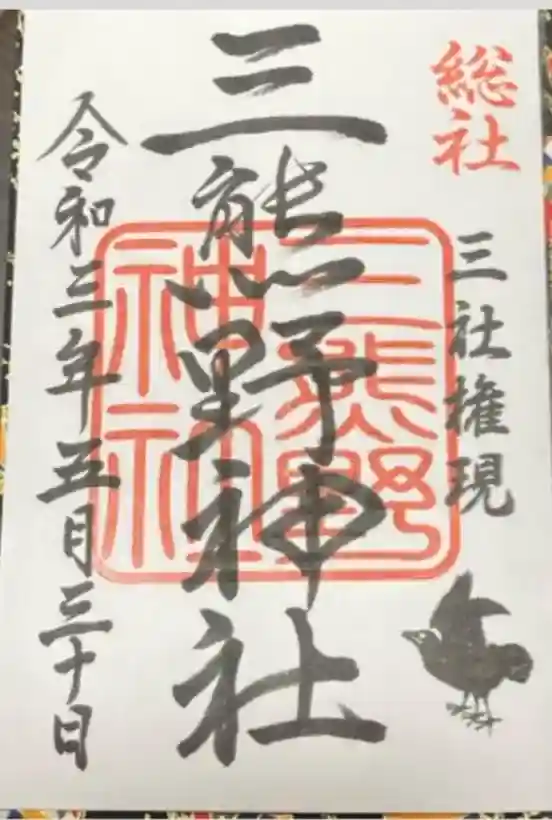 総社
三社権現
三熊野神社
三熊野
神社
令和三年五月三十日